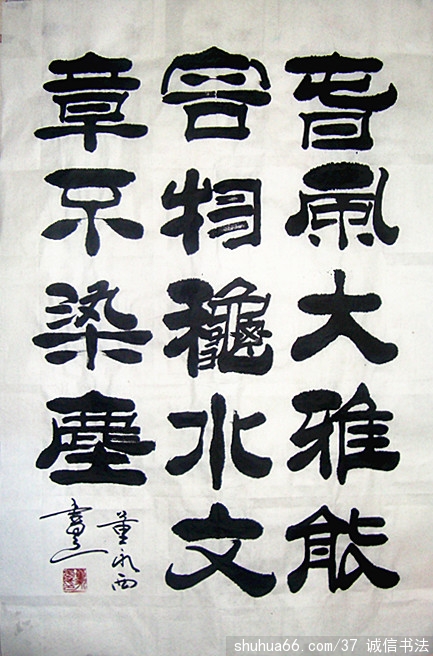 旾風大雅能
容物龝水文
章不染塵
董永西
書
shuhua66.com/37 诚信书法